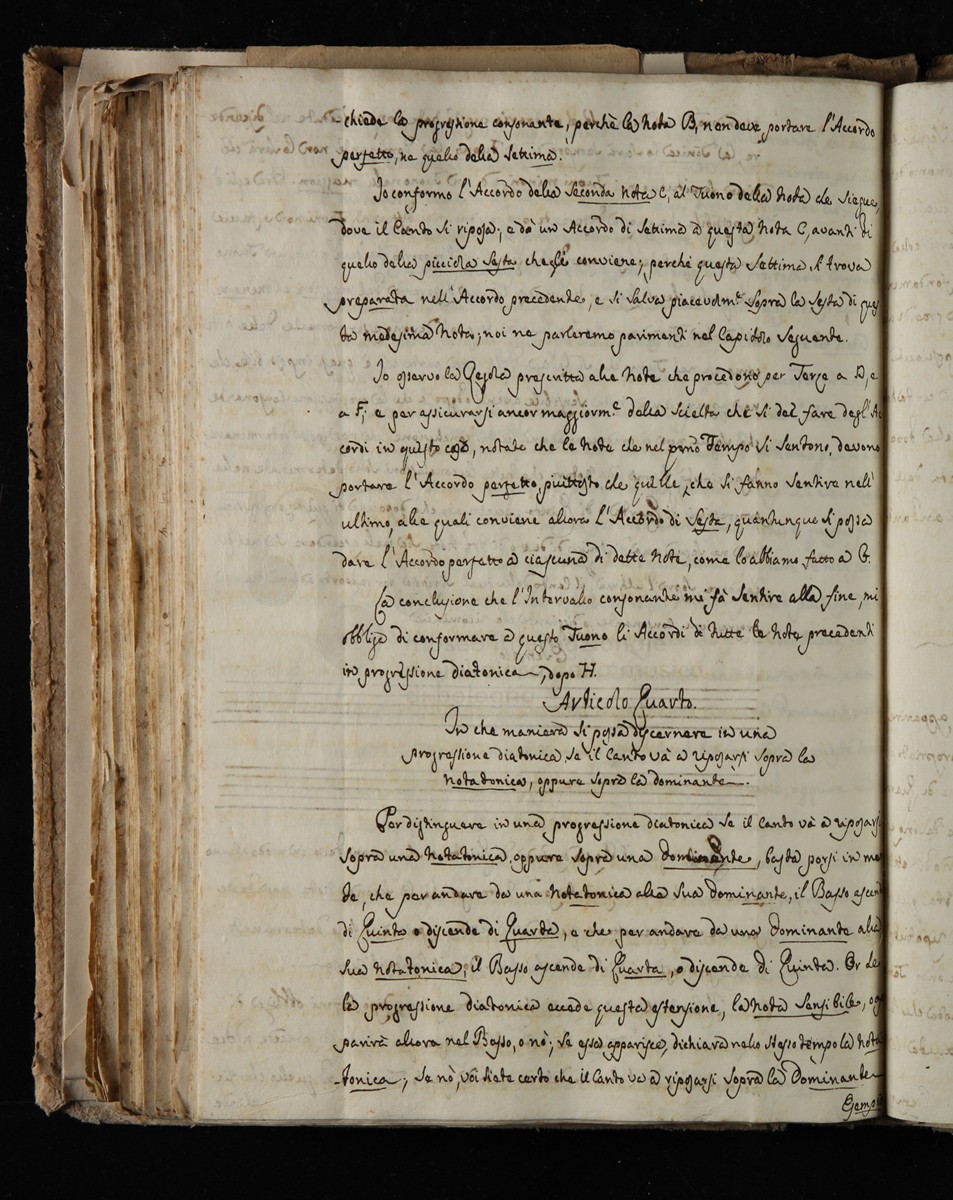 -chiede la progressione consonante, perchè la nota B, non deve portare l'Accordo
perfetto, ne quello della settima.
Io conformo l'Accordo della seconda nota C, al Tuono della nota che siegue,
dove il Canto si riposa; e dà un Accordo di settima a questa nota C, avanti di
quello della picciola sesta che gli conviene; perchè questa settima si trova
preparata nell'Accordo precedente, e si salva piacevolm.e sopra la sesta di ques
ta medesima nota; noi ne parleremo parimenti nel Capitolo seguente.
Io osservo la Regola prescritta alle note che procedono per Terze a D, e
a F; e per assicurarsi ancor maggiorm.e della scielta che si del fare degl'Ac
cordi in questo caso, notate che le note che nel primo Tempo si sentono, devono
portare l'Accordo perfetto, piuttosto che quelle, che si fanno sentire nell'
ultimo, alle quali conviene allora l'Accordo di sesta, quantunque si possa
dare l'Accordo perfetto a ciascuna di dette note, come lo abbiamo fatto a G.
La conclusione che l'Intervallo consonante mi fà sentire alla fine, mi
obbliga di conformare a questo Tuono li Accordi di tutte le note precedenti
in progressione diatonica, dopo H.
Articolo Quarto.
In che maniera si possa discernere in una
progressione diatonica se il Canto và a riposarsi sopra la
notatonica, oppure sopra la dominante.
Per distinguere in una progressione diatonica se il Canto và a riposarsi
sopra una notatonica, oppure sopra una dominante, basta porsi in me
te, che per andare da una notatonica alla sua dominante, il Basso ascen
di Quinta o discende di Quarta, e che per andare da una dominante alla
sua notatonica, il Basso ascende di Quarta, o discende di Quinta. Or se
la progressione diatonica eccede questa estensione, la nota sensibile, o
parirà allora nel Basso, o nò; se essa apparisce, dichiara nello stesso tempo la nota
-tonica; se nò, voi siate certo che il Canto va a riposarsi sopra la Dominante
Esemp